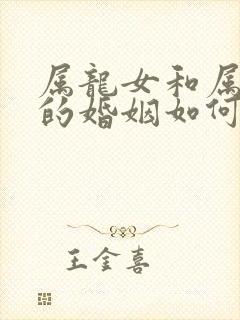 属龍女和属
的婚姻如何
王金喜